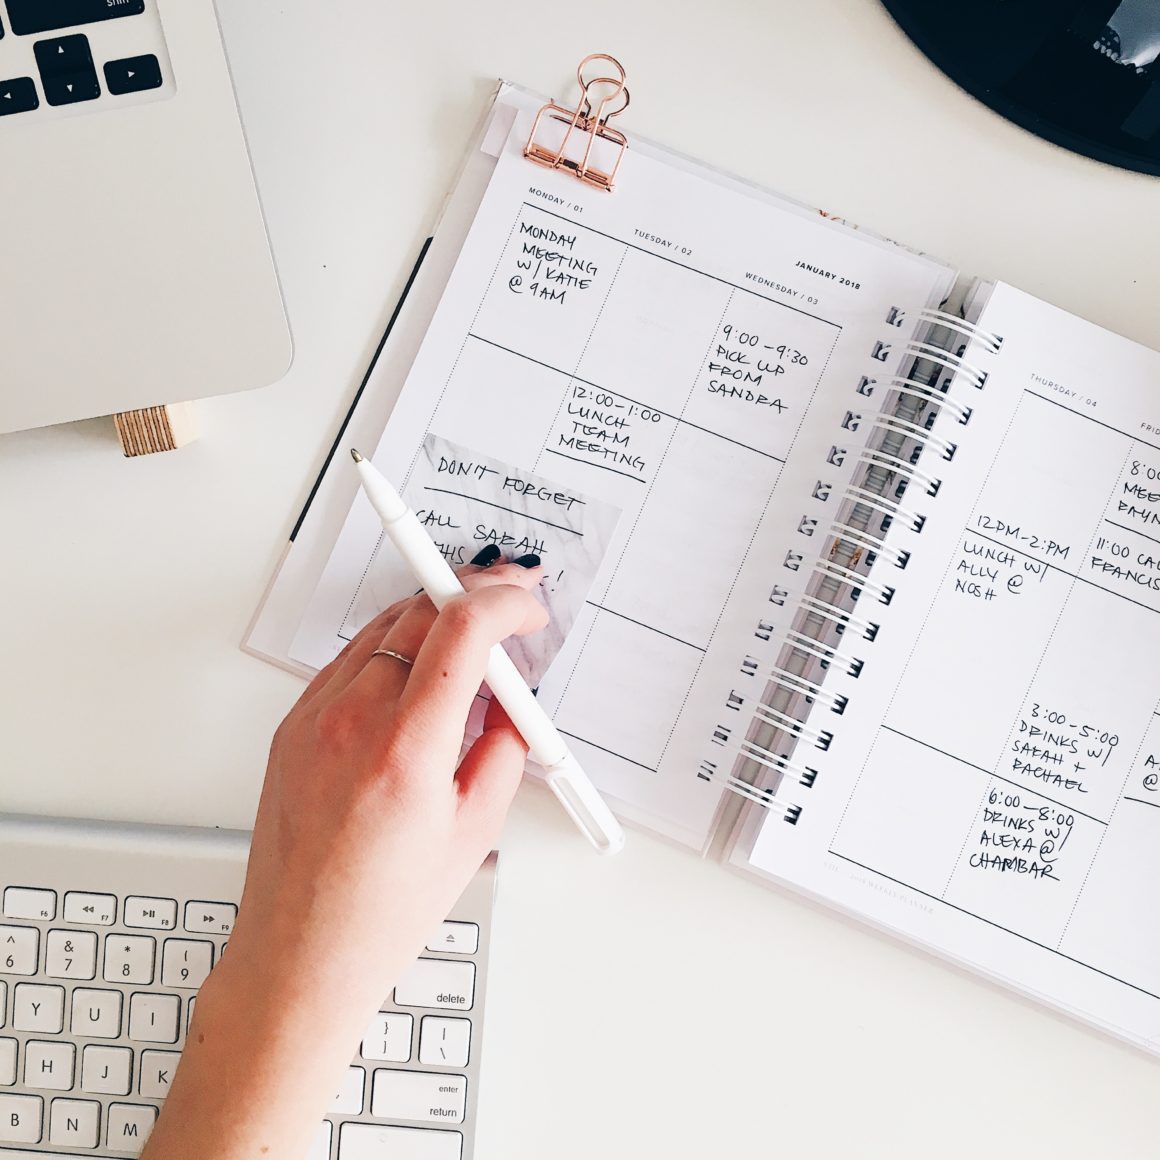 MONDAY / 01
MONDAY
MEETING
W/ KATIE
@ 9AM
TUESDAY / 02
12:00-1:00
LUNCH
TEAM
MEETING
JANUARY 2018
WEDNESDAY / 03
9:00-9:30
PICK UP
FROM
SANDRA
DON'T FORGET
CALL SARAH
THURSDAY / 04
12PM-2:PM
LUNCH W/
ALLY @
NOSH
8:00
11:00
FRANCIS
3:00-5:00
DRINKS W/
SARAH +
RACHAEL
6:00-8:00
DRINKS W/
ALEXA @
CHAMBAR
2018 WEEKLY PLANNER
shift
F6
F7
F8
F9
^
6
&
7
*
8
(
9
delete
Y
U
I
}
]
|
\
H
J
K
enter
return
B
N
M